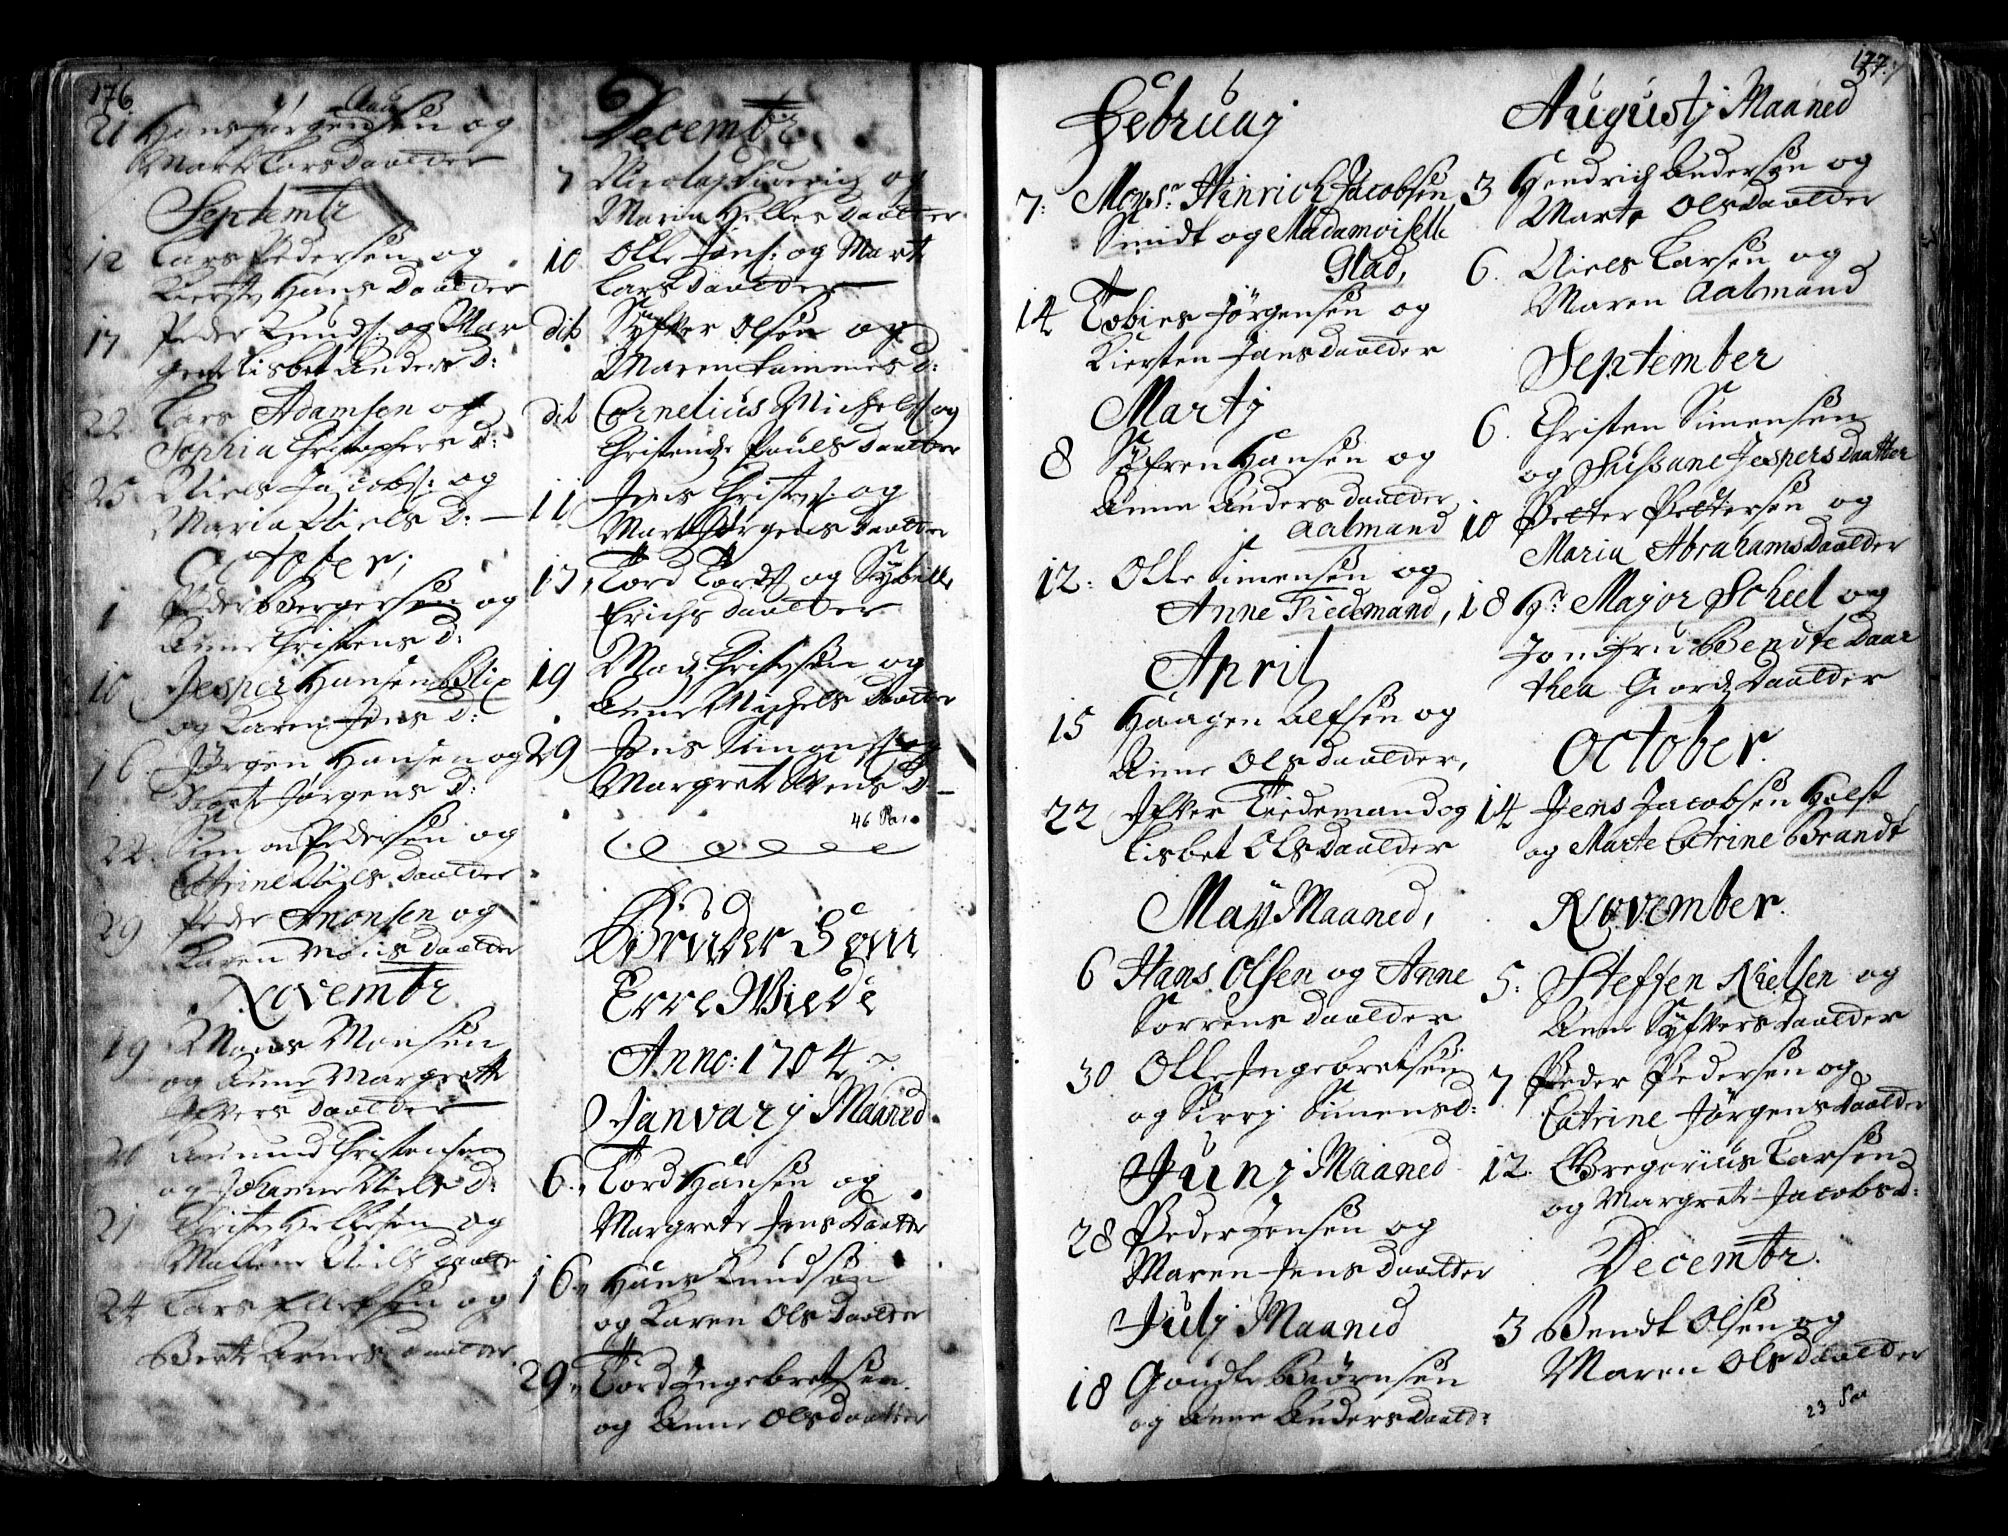 176
21 Hans Jørgensen og
Marte Lars Daatter
Septembr
12 Lars Pedersen og
Kirsti Hans Daatter
17 Peder Knuds: og Mar
grete Lisbet Anders D:
22 Lars Adamsen og
Sophia Christophers D:
25 Niels Jacobs: og
Maria Niels D:
October;
1 Peder Bergersen og
Anne Christens D:
10 Jesper Hansen Blix
og Karen Jens D:
16. Jørgen Hansen og
Marte Jørgens D:
22. Simon Pedersen og
Catrine Niels Daatter
29 Peder Amonsen og
Karen Mons Daatter
Novembr
19 Mons Monsen
og Anne Margrette
Ifvers Daatter
20 Amund Christensen
og Johanne Niels D:
21 Christen Hellesen og
Mallene Niels Daatter
24 Lars Ellefsen og
Berte Arnes Daatter
Decembr
7 Nicolaj Sivering og
Maria Helles Daatter
10 Olle Jens: og Marte
Lars Daatter
dito Syfver Olsen og
Maren Lammes D:
dito Cornelius Michels: og
Christentze Pouls Daatter
11 Jens Christens: og
Marte Jørgens Daatter
17, Tord Tords: og Sybille
Erichs Daatter
19 Mads Christensen og
Anne Michels Daatter
29 Jens Simons: og
Margrete Svens D:
46 Par
Bruder Som
Erre Wiede
Anno: 1704
Januarj Maaned
6., Tord Hansen og
Margrete Jens Daatter
16., Hans Knudsen
og Karen Ols Daatter
29., Tord Ingebretsen
og Anne Ols Daatter
177.
Februarj
7: Monsr. Hinrich Jacobsen
Smidt og Madamoiselle
Glad,
14 Tobies Jørgensen og
Kiersten Jans Daatter
Martj
8 Søfren Hansen og
Anne Anders Daatter
Aalmand
12: Olle Simensen og
Anne Tiedemand,
April
15 Haagen Alfsen og
Anne Ols Daatter,
22 Ifver Tiedemand og
Lisbet Ols Daatter
May Maaned,
6 Hans Olsen og Anne
Sørrens Daatter
30 Olle Ingebretsen
og Sirrj Simens D:
Junj Maaned
28 Peder Jensen og
Maren Jens Daatter
Julj Maaned
18 Goudte Biørnsen
og Anne Anders Daatt:
Augustj Maaned
3 Hendrich Andersen og
Marte Ols Daatter
6. Niels Larsen og
Maren Aalmand
September
6. Christen Simensen
og Sussane Jespers Daatter
10 Petter Pettersen og
Maria Abrahams Daatter
18 Hr. Major Scheel og
Jomfru Bendte Daar
thea Giords Daatter
October.
14 Jens Jacobsen Holst
og Marte Catrine Brandt
November.
5: Steffen Nielsen og
Anne Syfvers Daatter
7 Peder Pedersen og
Catrine Jørgens Daatter
12. Gregorius Larsen
og Margrete Jacobs D:
Decembr.
3 Bendt Olsen og
Maren Ols Daatter
23 Par